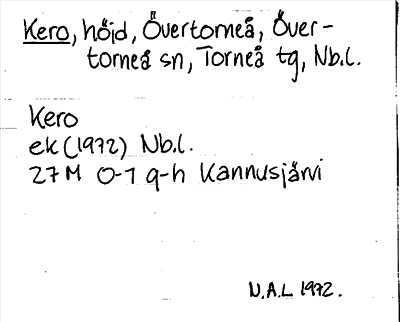 Kero, höjd, Övertorneå, Över-
torneå sn, Torneå tg, Nb.l.
Kero
ek (1972) Nb.l.
27M 0-1 g-h Kannusjärvi
N.A.L 1972.